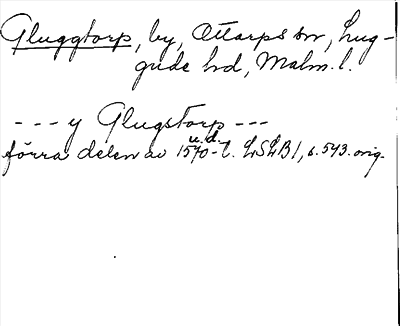 Gluggtorp, by, Ottarps sn, Lug-
gude hd, Malm. l.
--- y Glugstorp ---
u. d.
förra delen av 1570-t. LSLB1, s. 543. orig.